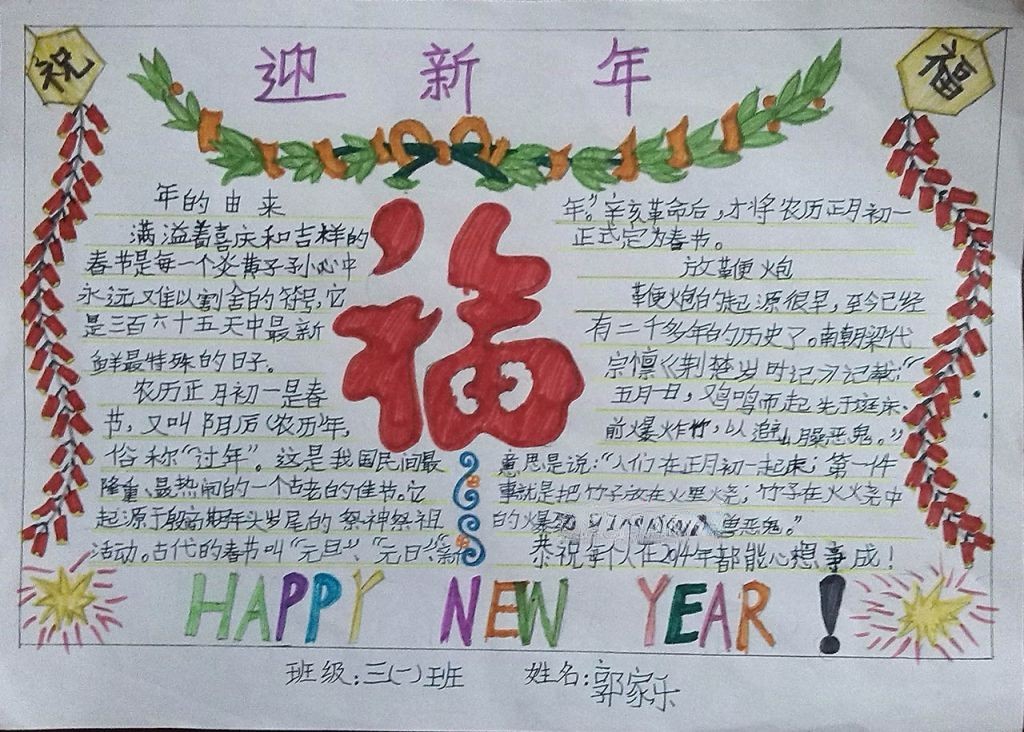 祝
福
迎新年
年的由来
满溢着喜庆和吉祥的
春节是每一个炎黄子孙心中
永远难以割舍的符号,它
是三百六十五天中最新
鲜最特殊的日子。
农历正月初一是春
节,又叫阴历(农历)年,
俗称“过年”。这是我国民间最
隆重、最热闹的一个古老的佳节。它
起源于殷商期年头岁尾的祭神祭祖
活动。古代的春节叫“元旦”、“元日”、“新
福
年”。辛亥革命后,才将农历正月初一
正式定为春节。
放鞭炮
鞭炮的起源很早,至今已经
有二千多年的历史了。南朝梁代
宗懔《荆楚岁时记》记载:“
五月一日,鸡鸣而起先于庭床
前爆炸竹,以避山臊恶鬼。”
意思是说:“人们在正月初一起床;第一件
事就是把竹子放在火里烧;竹子在火烧中
的爆 兽恶鬼。”
恭祝每个人在2014年都能心想事成!
HAPPY NEW YEAR!
班级:三(一)班 姓名:郭家乐